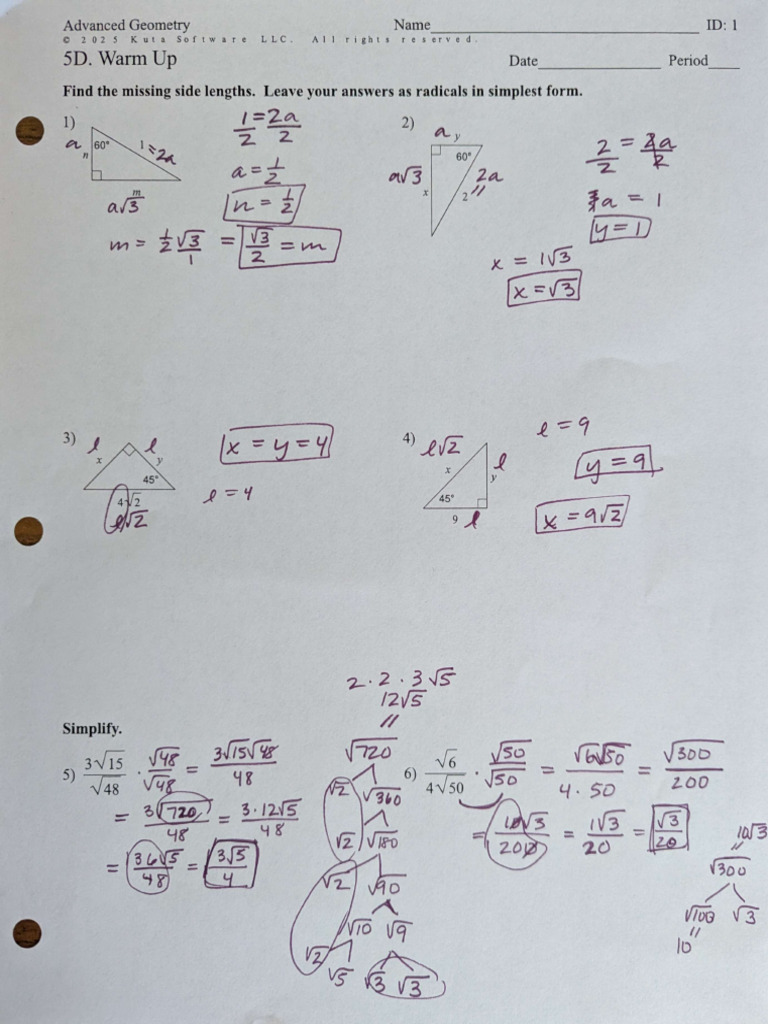 Advanced Geometry Name____________________ ID: 1
© 2025 Kuta Software LLC. All rights reserved.
5D. Warm Up Date____________ Period____
Find the missing side lengths. Leave your answers as radicals in simplest form.
1)
a
n
60°
1 = 2a
m
a√3
1/2 = 2a/2
a = 1/2
n = 1/2
m = 1/2 √3/1 = √3/2 = m
2)
a y
60°
a√3
x
2 2a
2/2 = 2a/2
a = 1
y = 1
x = 1√3
x = √3
3)
l l
x y
45°
4√2
l√2
x = y = 4
l = 4
4)
l√2
x
l
y
45°
9 l
l = 9
y = 9
x = 9√2
Simplify.
5) 3√15/√48 · √48/√48 = 3√15√48/48
= 3√720/48 = 3·12√5/48
= 36√5/48 = 3√5/4
2·2·3√5
12√5
=
√720
√2 √360
√2 √180
√2 √90
√10 √9
√2 √5 √3 √3
6) √6/4√50 · √50/√50 = √6√50/4·50 = √300/200
= 10√3/200 = 1√3/20 = √3/20
10√3
=
√300
√100 √3
=
10